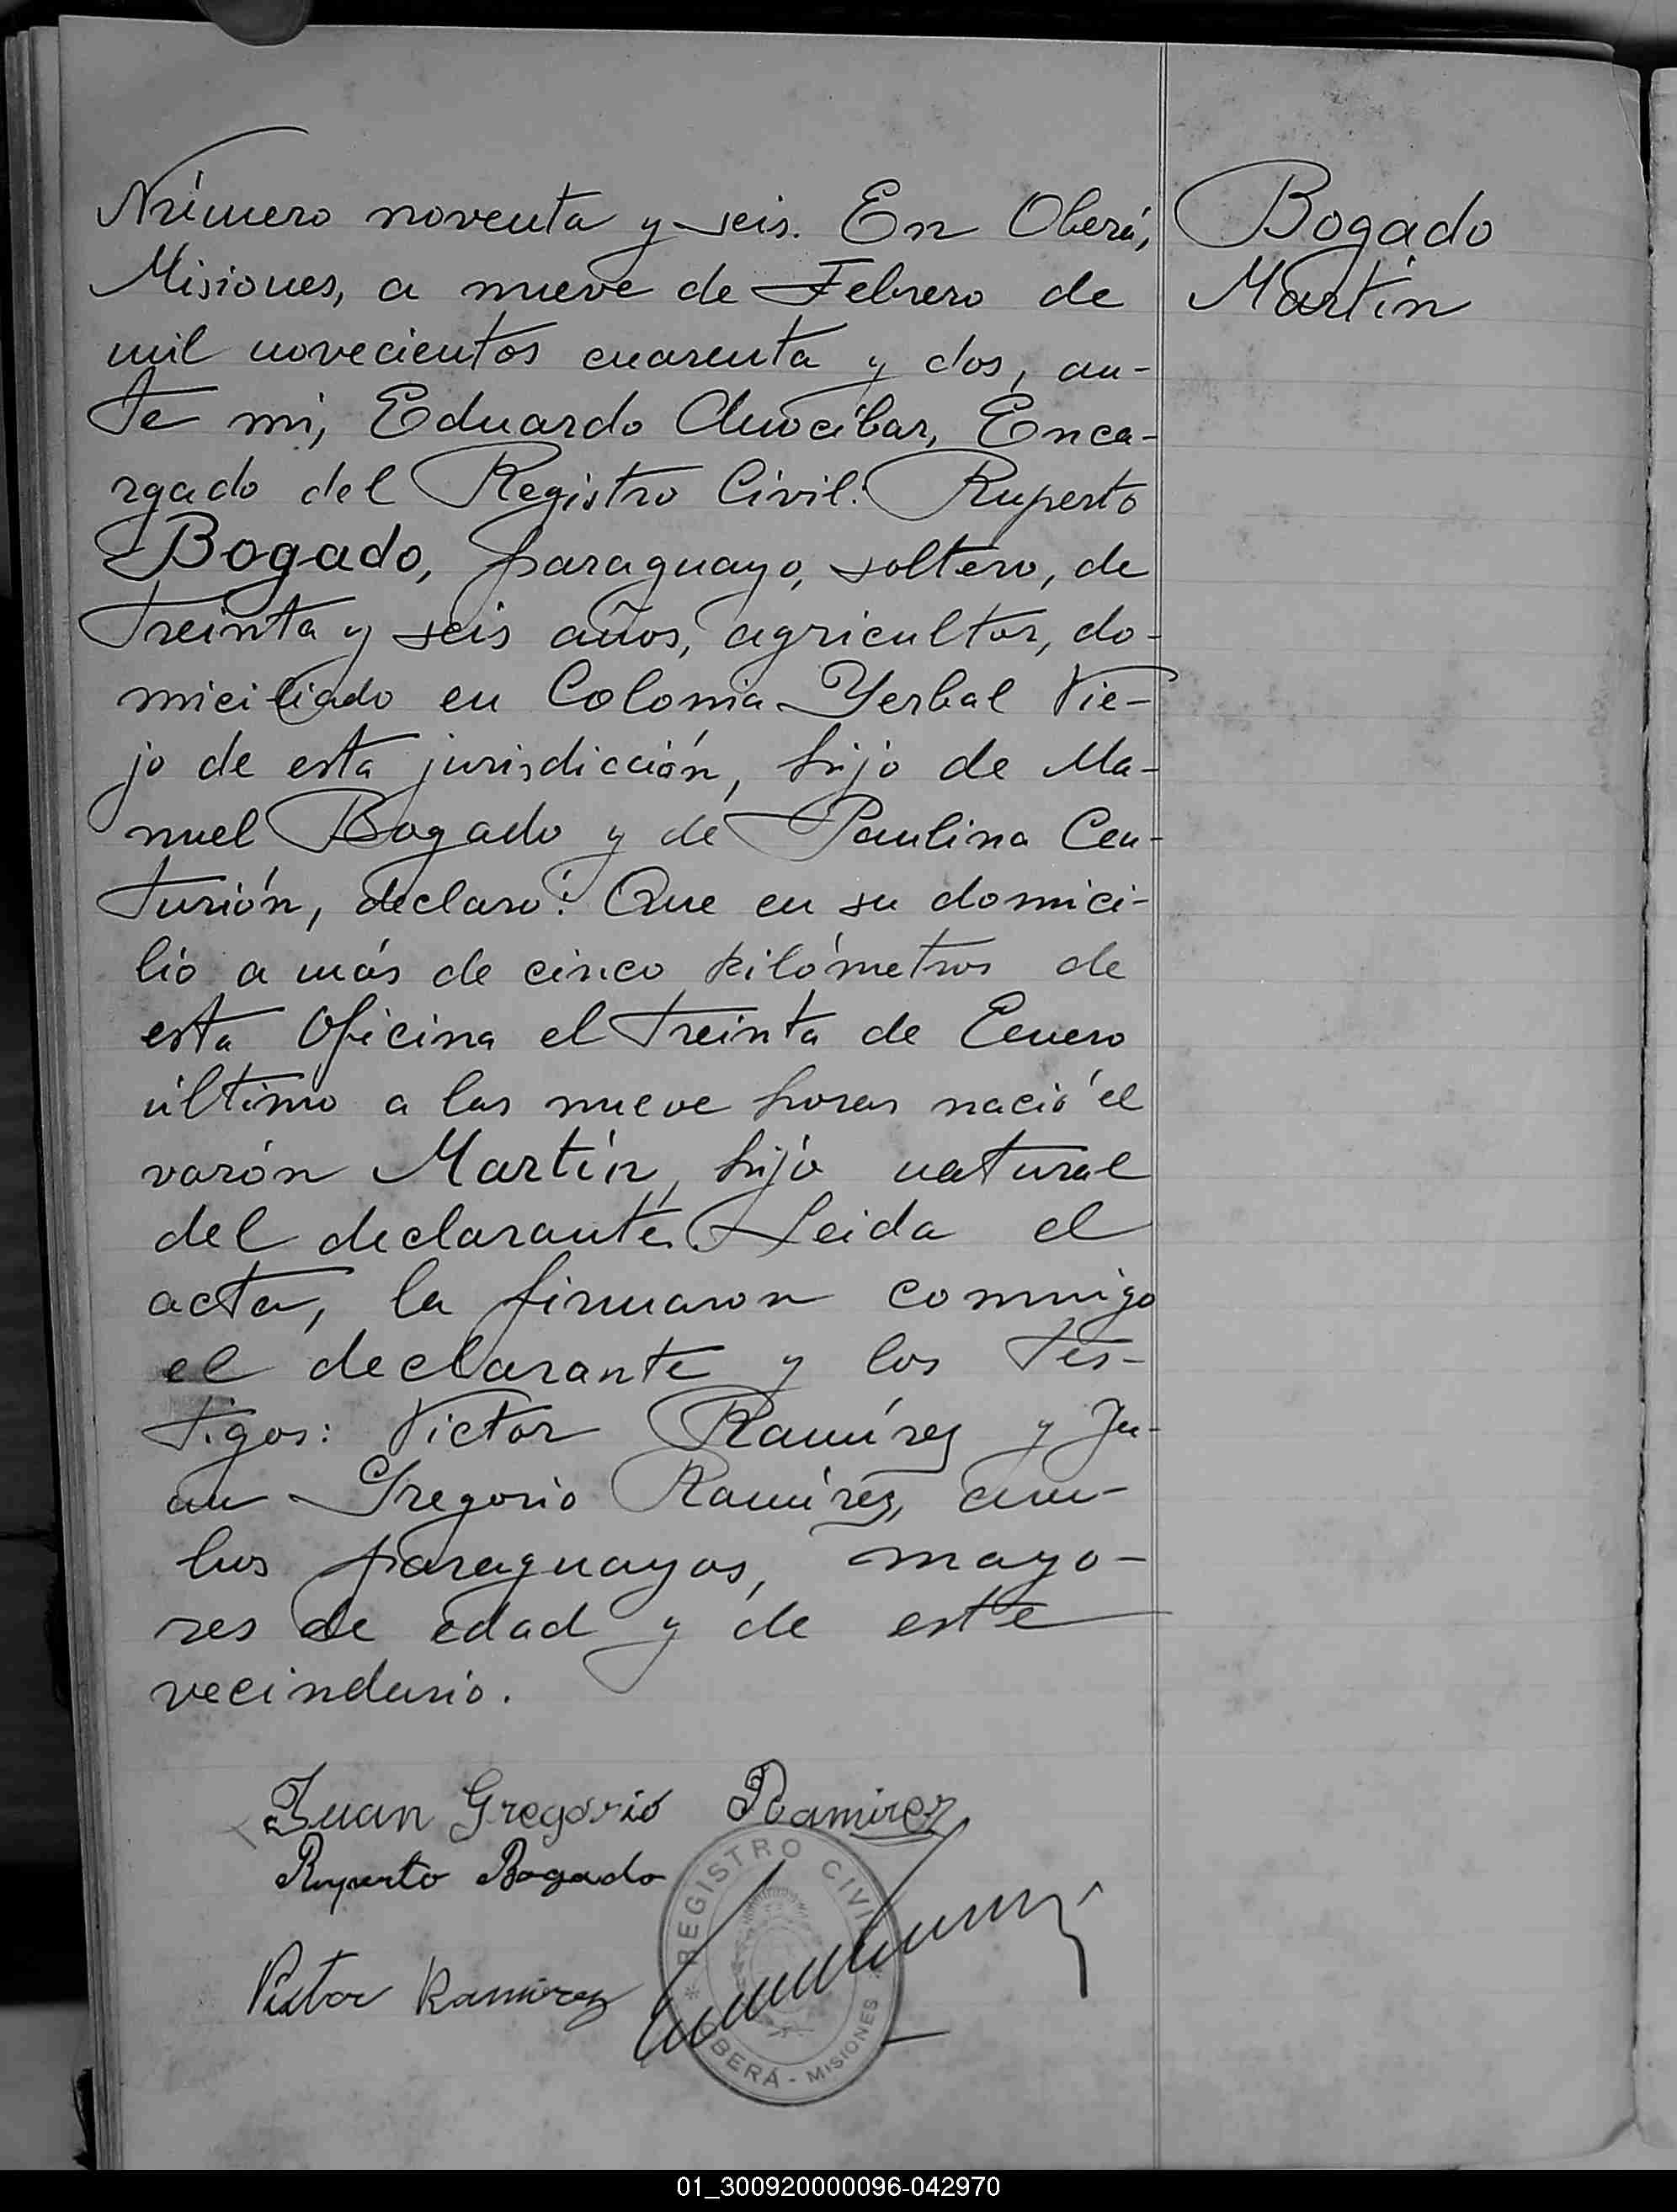 Número noventa y seis. En Oberá,
Misiones, a nueve de Febrero de
mil novecientos cuarenta y dos, an-
te mi, Eduardo Enca-
rgado del Registro Civil: Ruperto
Bogado, paraguayo, soltero, de
treinta y seis años, agricultor, do-
miciliado en Colonia Yerbal Vie-
jo de esta jurisdicción, hijo de Ma-
nuel Bogado y de Paulina Cen-
turión, declaró: Que en su domici-
lio a más de cinco kilómetros de
esta Oficina el treinta de Enero
último a las nueve horas nació el
varón Martín, hijo natural
del declarante. Leida el
acta, la firmaron conmigo
el declarante y los tes-
tigos: Victor Ramírez y Ju-
an Gregorio Ramírez, am-
bos paraguayos, mayo-
res de edad y de este
vecindario.
Bogado
Martín
Juan Gregorio Ramirez
Ruperto Bogado
Victor Ramirez
REGISTRO CIVIL
OBERÁ - MISIONES
01_300920000096-042970